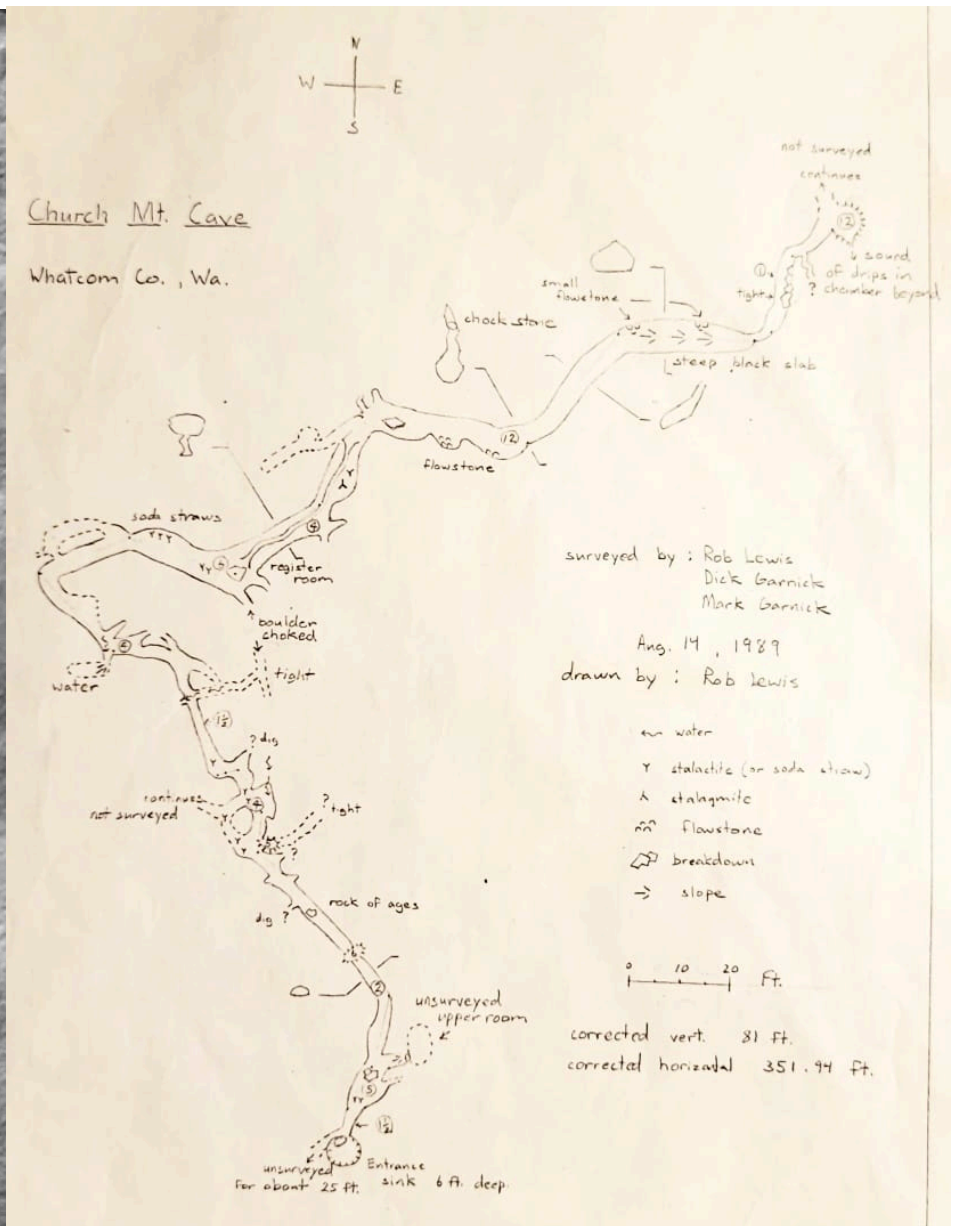 N
W E
S
Church Mt. Cave
Whatcom Co., Wa.
not surveyed
continues
12
sound
of drips in
? chamber beyond
tight
small
flowstone
chock stone
steep black slab
12
flowstone
soda straws
4
register
room
boulder
choked
tight
water
4
1½
? dig
continues
not surveyed
4
?
tight
?
rock of ages
dig ?
2
unsurveyed
upper room
5
1½
unsurveyed
For about 25 ft.
Entrance
sink 6 ft. deep.
surveyed by : Rob Lewis
Dick Garnick
Mark Garnick
Aug. 14, 1989
drawn by : Rob Lewis
water
stalactite (or soda straw)
stalagmite
flowstone
breakdown
slope
0 10 20 Ft.
corrected vert. 81 ft.
corrected horizadal 351.94 ft.